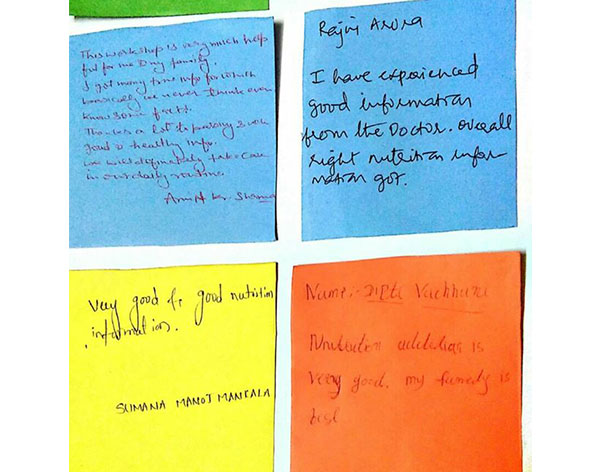 This workshop is very much help
ful for me & my family.
I got many true info for which
basically we never think even
know some fact.
Thanks a lot to passing such
good & healthy info.
we will definately take care
in our daily routine.
Amit kr. Sharma
Rajni Arora
I have experienced
good information
from the Doctor. overall
right nutrition infor-
mation got.
Very good & good nutrition
information.
SUMANA MANOJ MANTALA
Name:- Vachhare
is
Very good. my family is
best